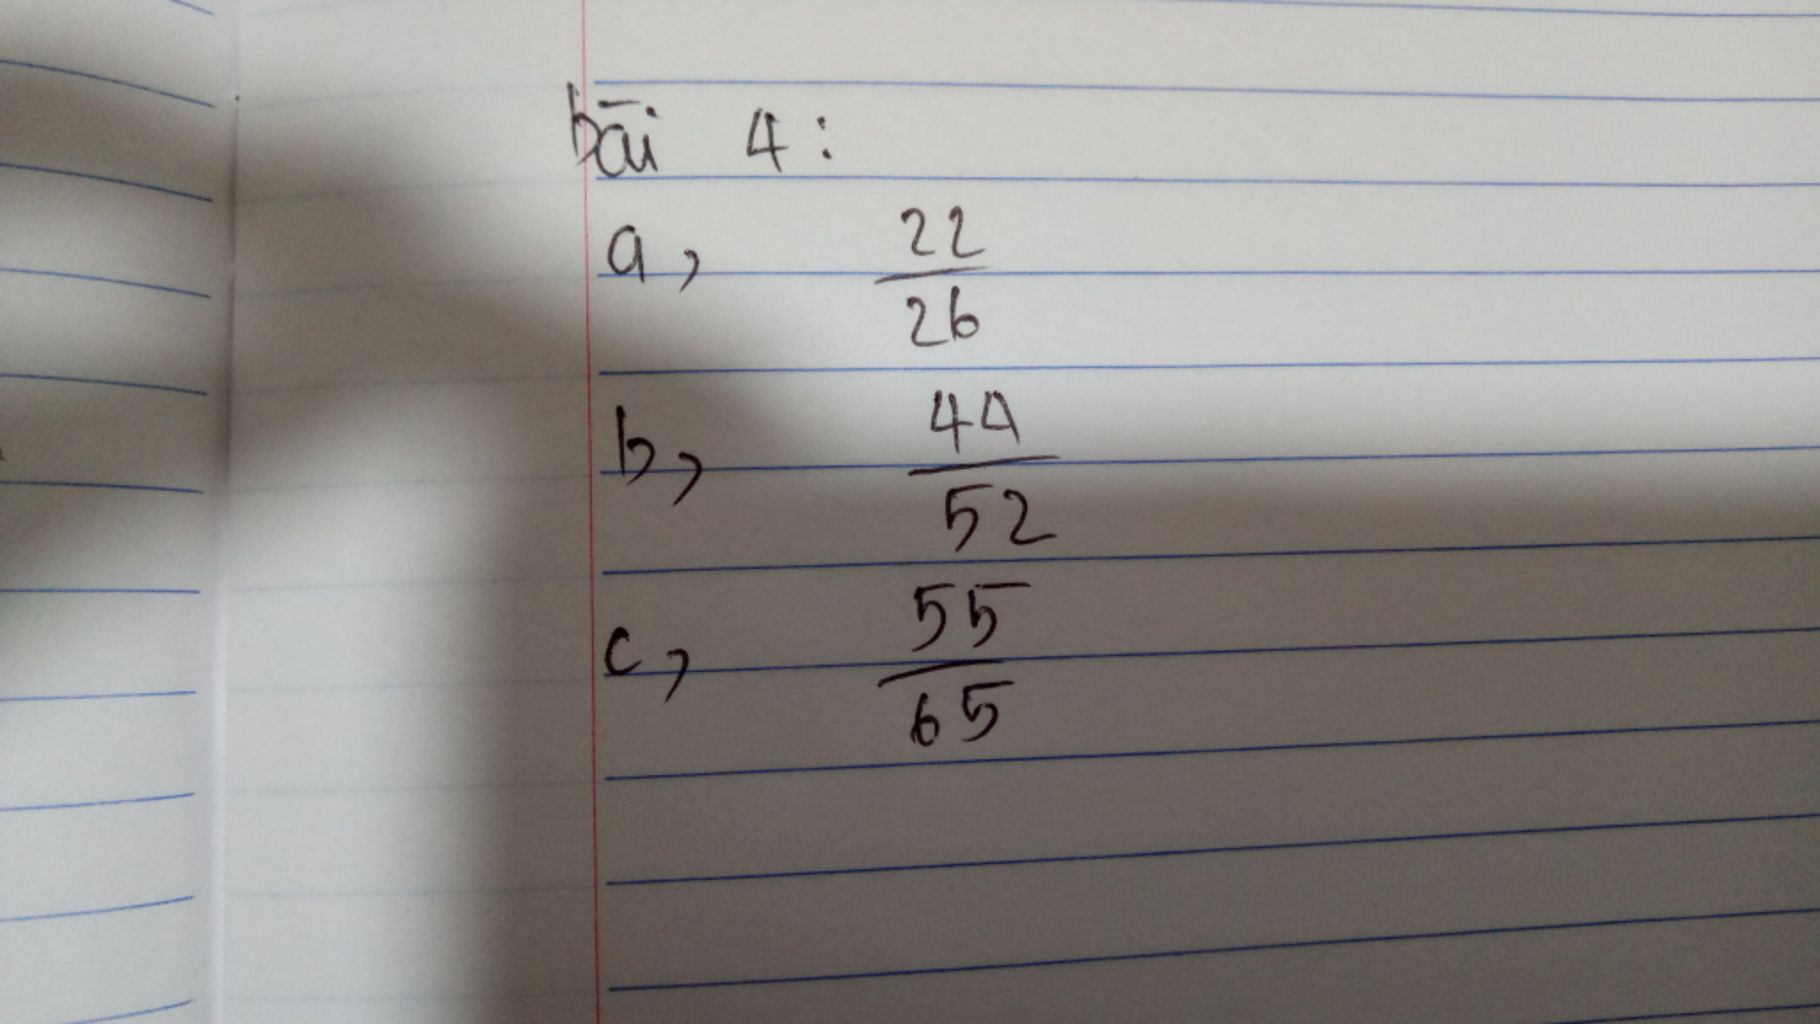 bài 4:
a, 22/26
b, 44/52
c, 55/65